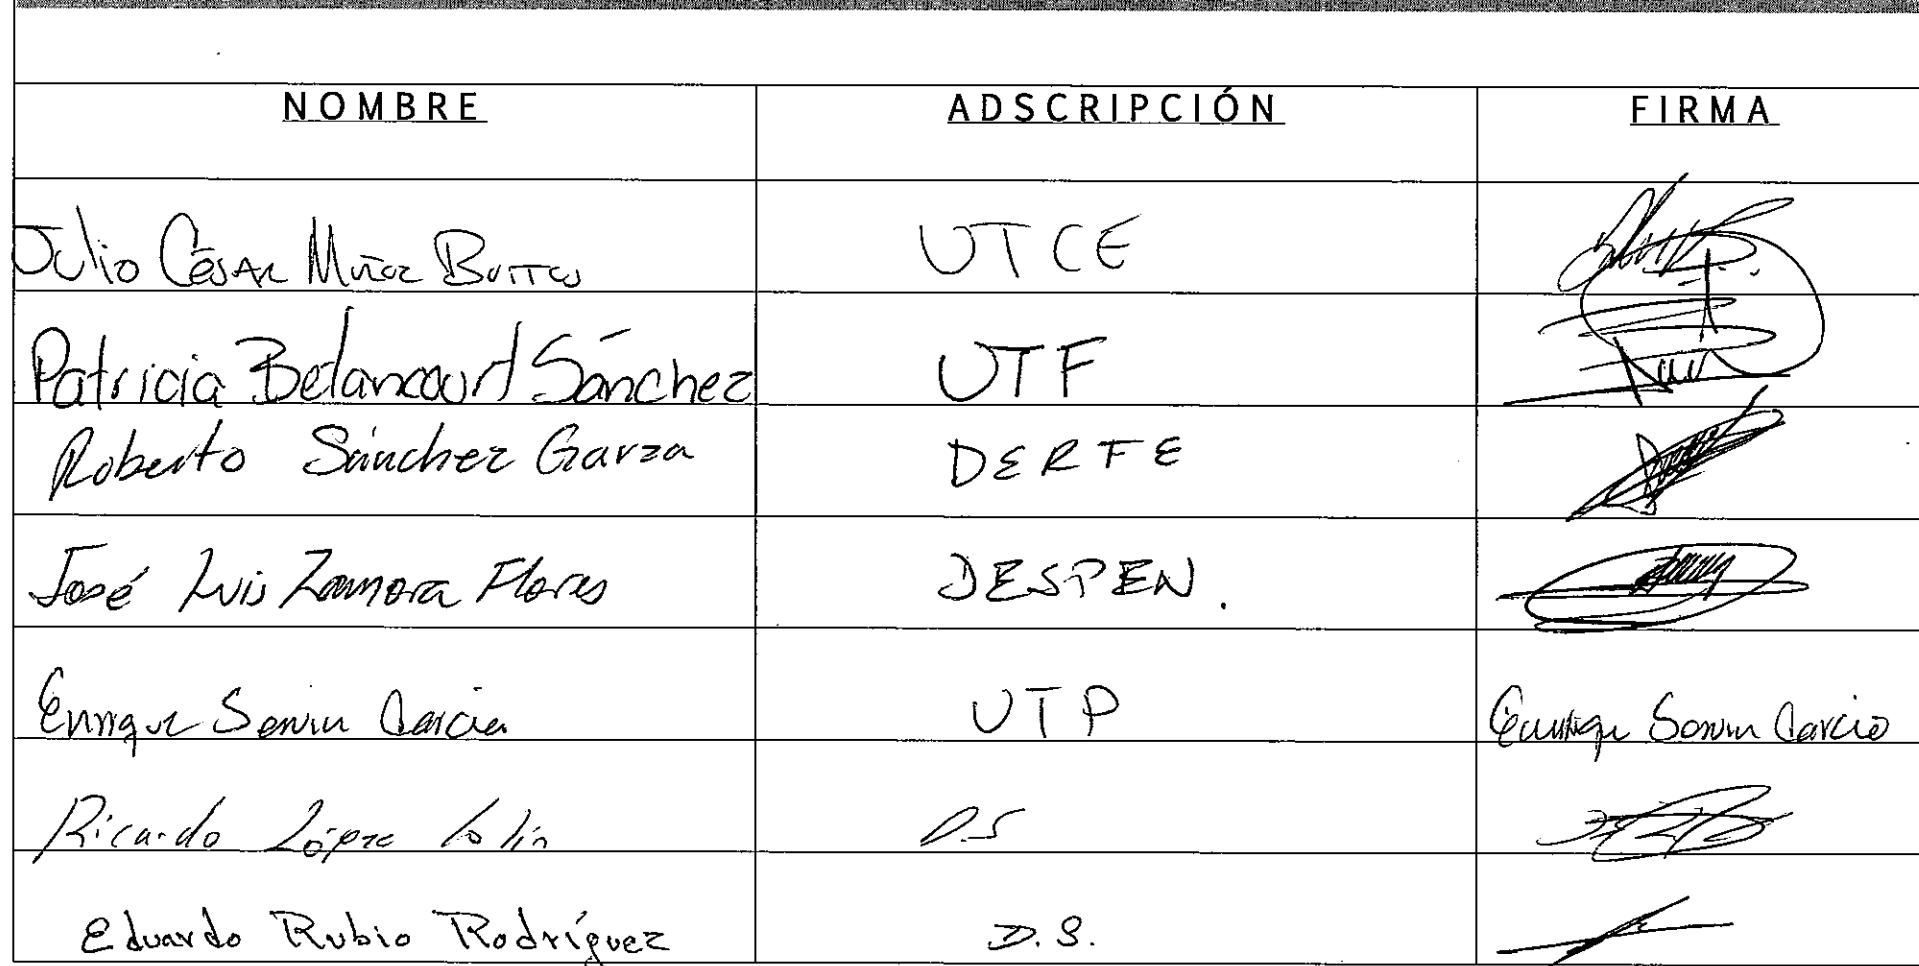 NOMBRE ADSCRIPCIÓN FIRMA
Julio César Muñoz UTCE
Patricia Betancourt Sánchez UTF
Roberto Sánchez Garza DERFE
José Luis Zamora Flores DESPEN.
Enrique García UTP Enrique García
Ricardo López D.S
Eduardo Rubio Rodríguez D.S.